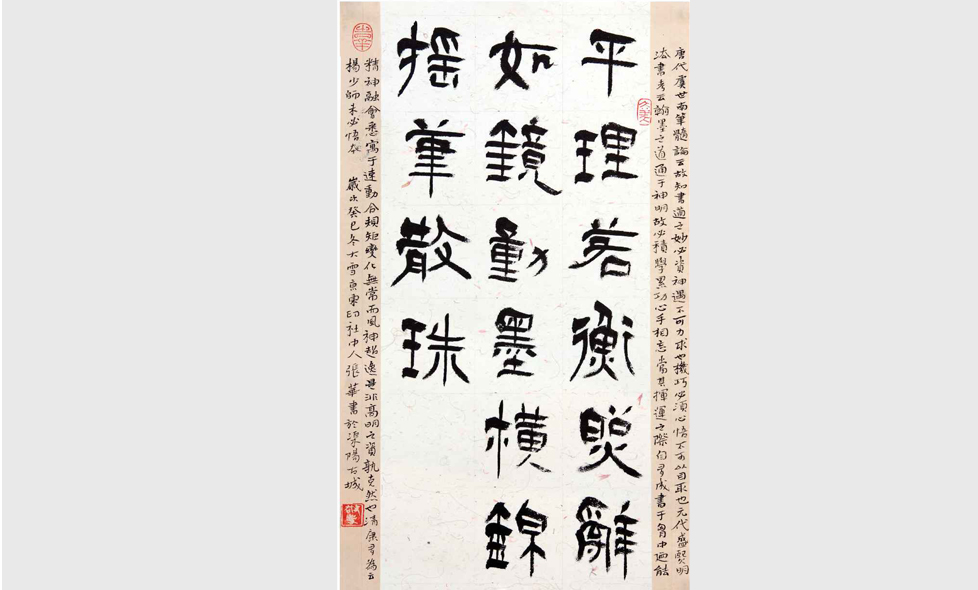 唐代虞世南筆髓論云故知書道之妙必資神遇不可力求也機巧必須心悟不可以目取也元代盛熙明
法書考云翰墨之道通于神明故必積學累功心手相忘當其揮運之際自有成書于胸中迺能
平理若衡照辭
如鏡動墨橫錦
搖筆散珠
精神融會悉寓于速動合規矩變化無常而風神超逸是非高明之資孰克然也清康有為云
楊少師未必悟 歲次癸巳冬大雪東印社中人張華書於溧陽古城